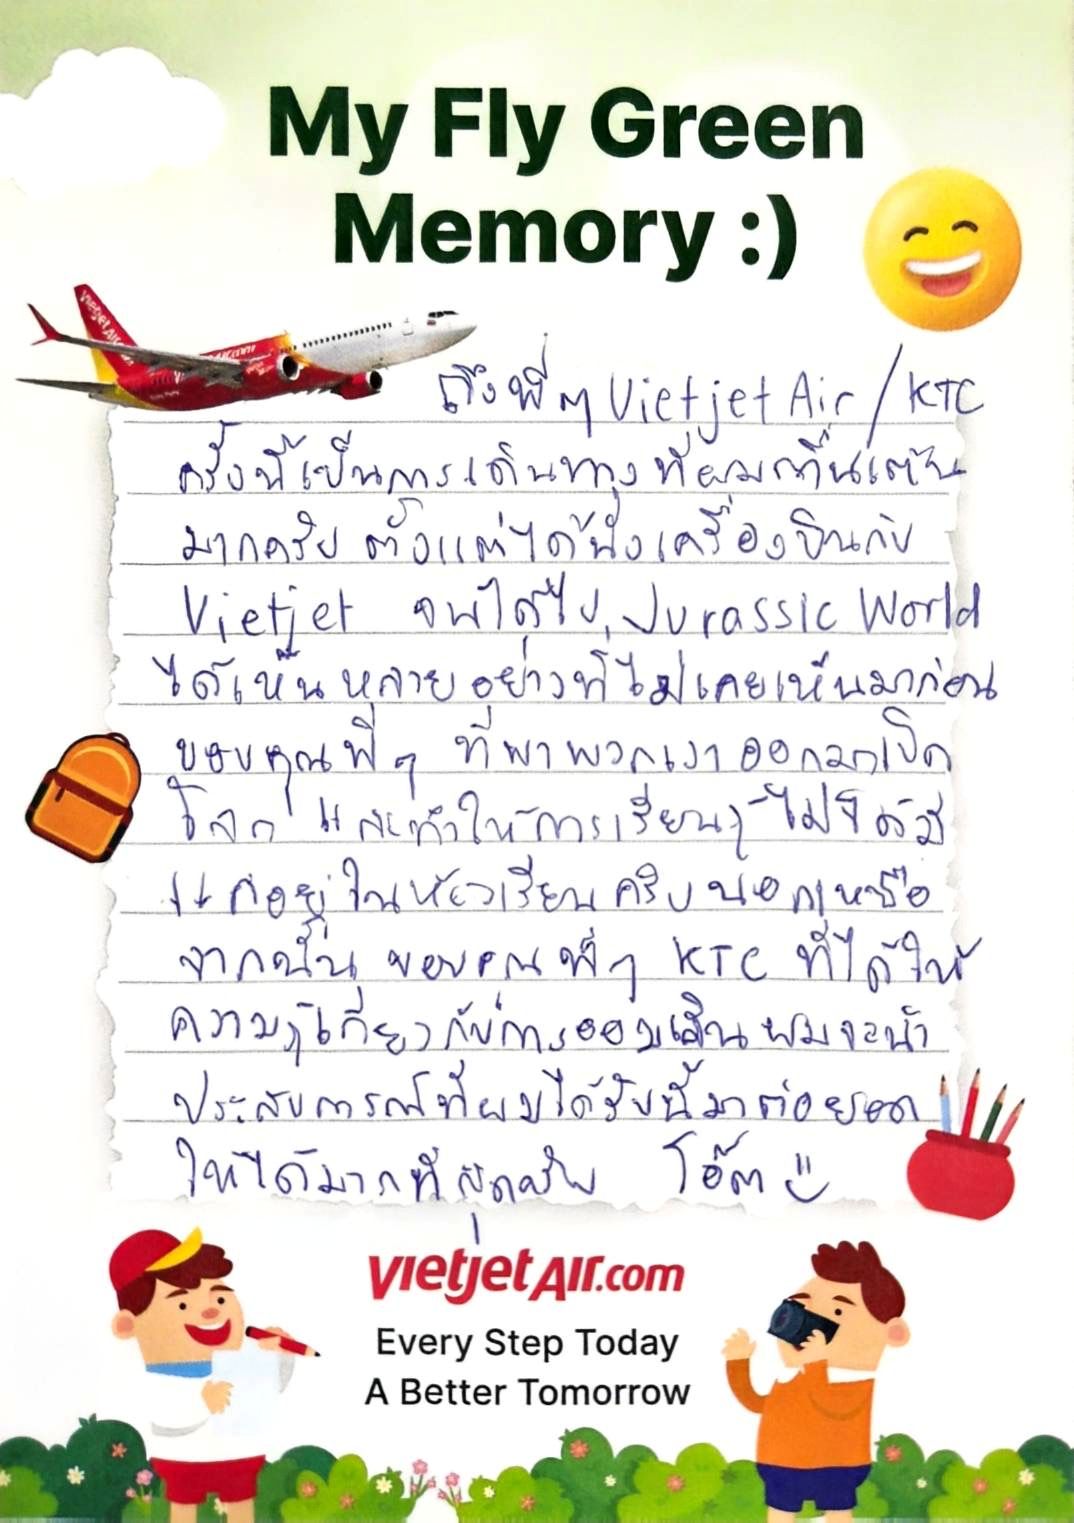 My Fly Green
Memory :)
vietjetAir.com
ถึงพี่ๆ Vietjet Air / KTC
ครั้งนี้เป็นการเดินทางที่ผมตื่นเต้น
มากครับ ตั้งแต่ได้นั่งเครื่องบินกับ
Vietjet จนได้ไป Jurassic World
ได้เห็นหลายอย่างที่ไม่เคยเห็นมาก่อน
ขอบคุณพี่ๆ ที่พาพวกเราออกมาเปิด
โลก และทำให้การเรียนรู้ไม่ได้มี
แค่อยู่ในห้องเรียนครับ นอกเหนือ
จากนั้น ขอบคุณพี่ๆ KTC ที่ได้ให้
ความรู้เกี่ยวกับการออมเงิน ผมจะนำ
ประสบการณ์ที่ผมได้รับนี้มาต่อยอด
ให้ได้มากที่สุดครับ โอ๊ต
vietjetAir.com
Every Step Today
A Better Tomorrow